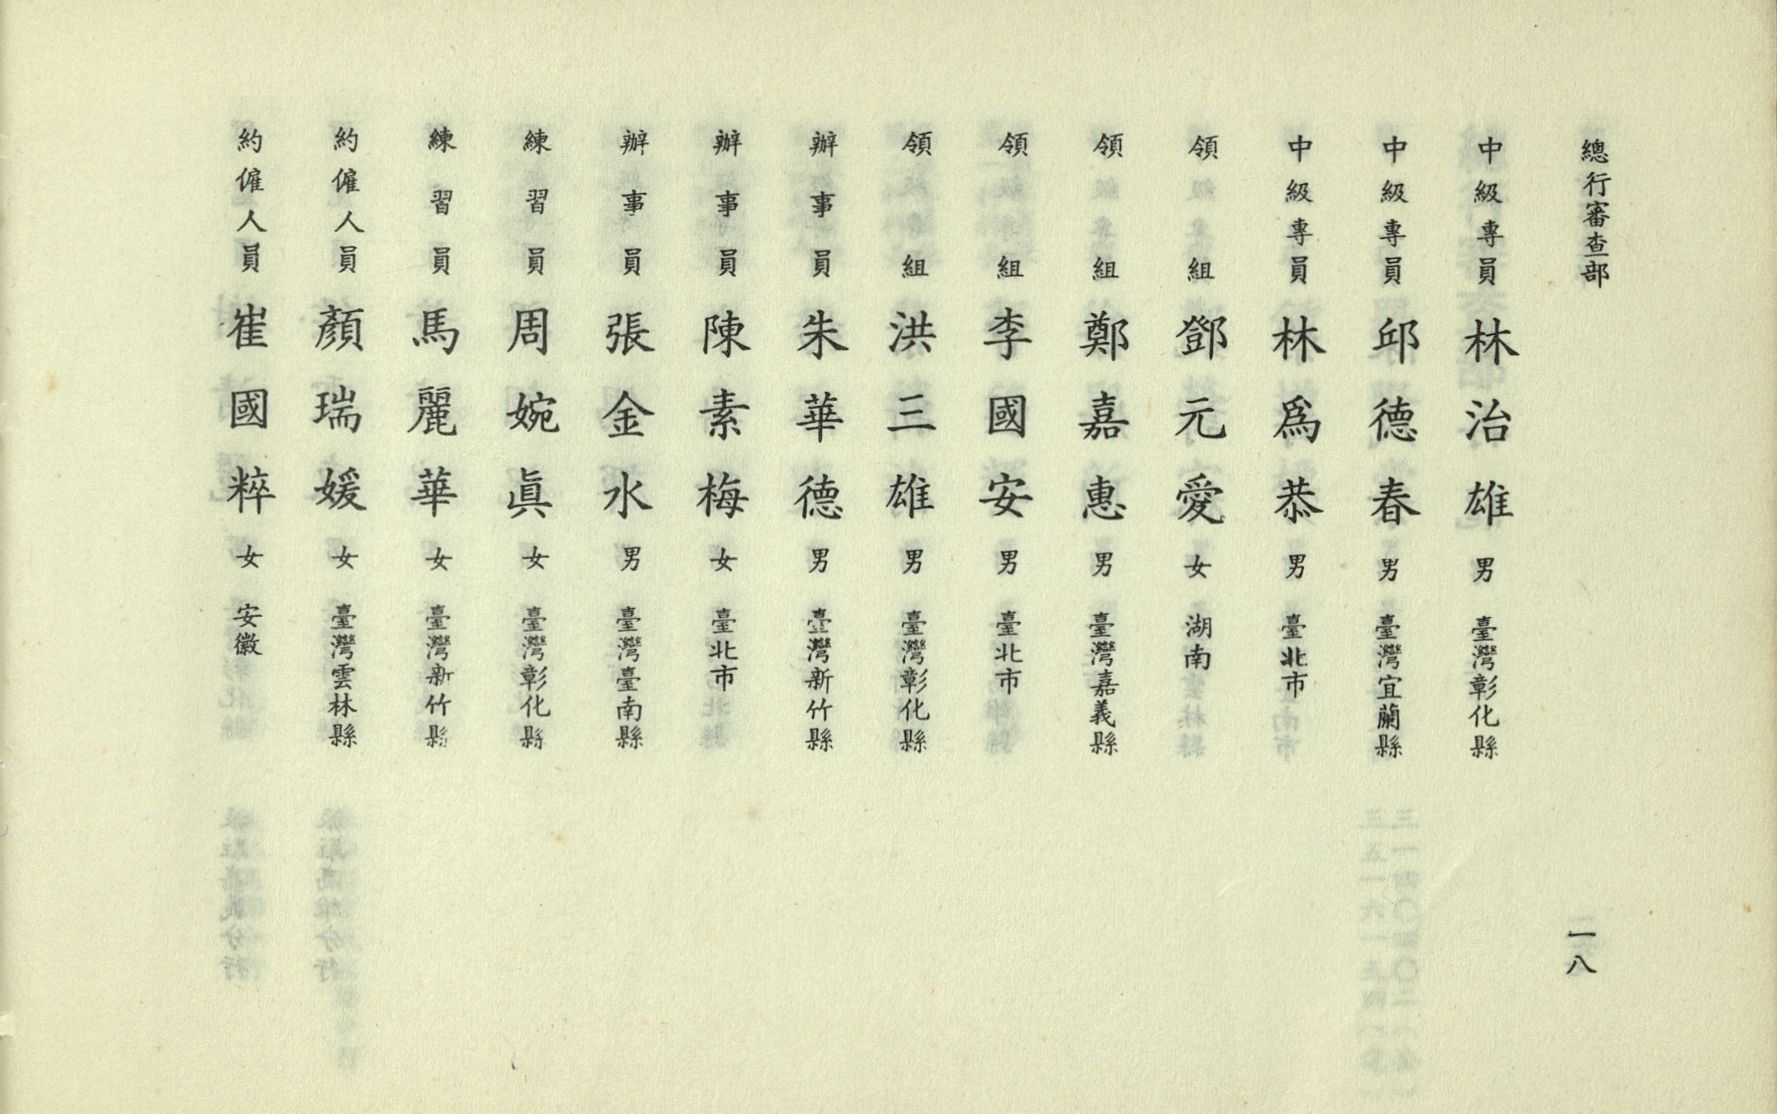 總行審查部
中級專員 林治雄 男 臺灣彰化縣
中級專員 邱德春 男 臺灣宜蘭縣
中級專員 林爲恭 男 臺北市
領組 鄧元愛 女 湖南
領組 鄭嘉惠 男 臺灣嘉義縣
領組 李國安 男 臺北市
領組 洪三雄 男 臺灣彰化縣
辦事員 朱華德 男 臺灣新竹縣
辦事員 陳素梅 女 臺北市
辦事員 張金水 男 臺灣臺南縣
練習員 周婉眞 女 臺灣彰化縣
練習員 馬麗華 女 臺灣新竹縣
約僱人員 顏瑞媛 女 臺灣雲林縣
約僱人員 崔國粹 女 安徽
一八